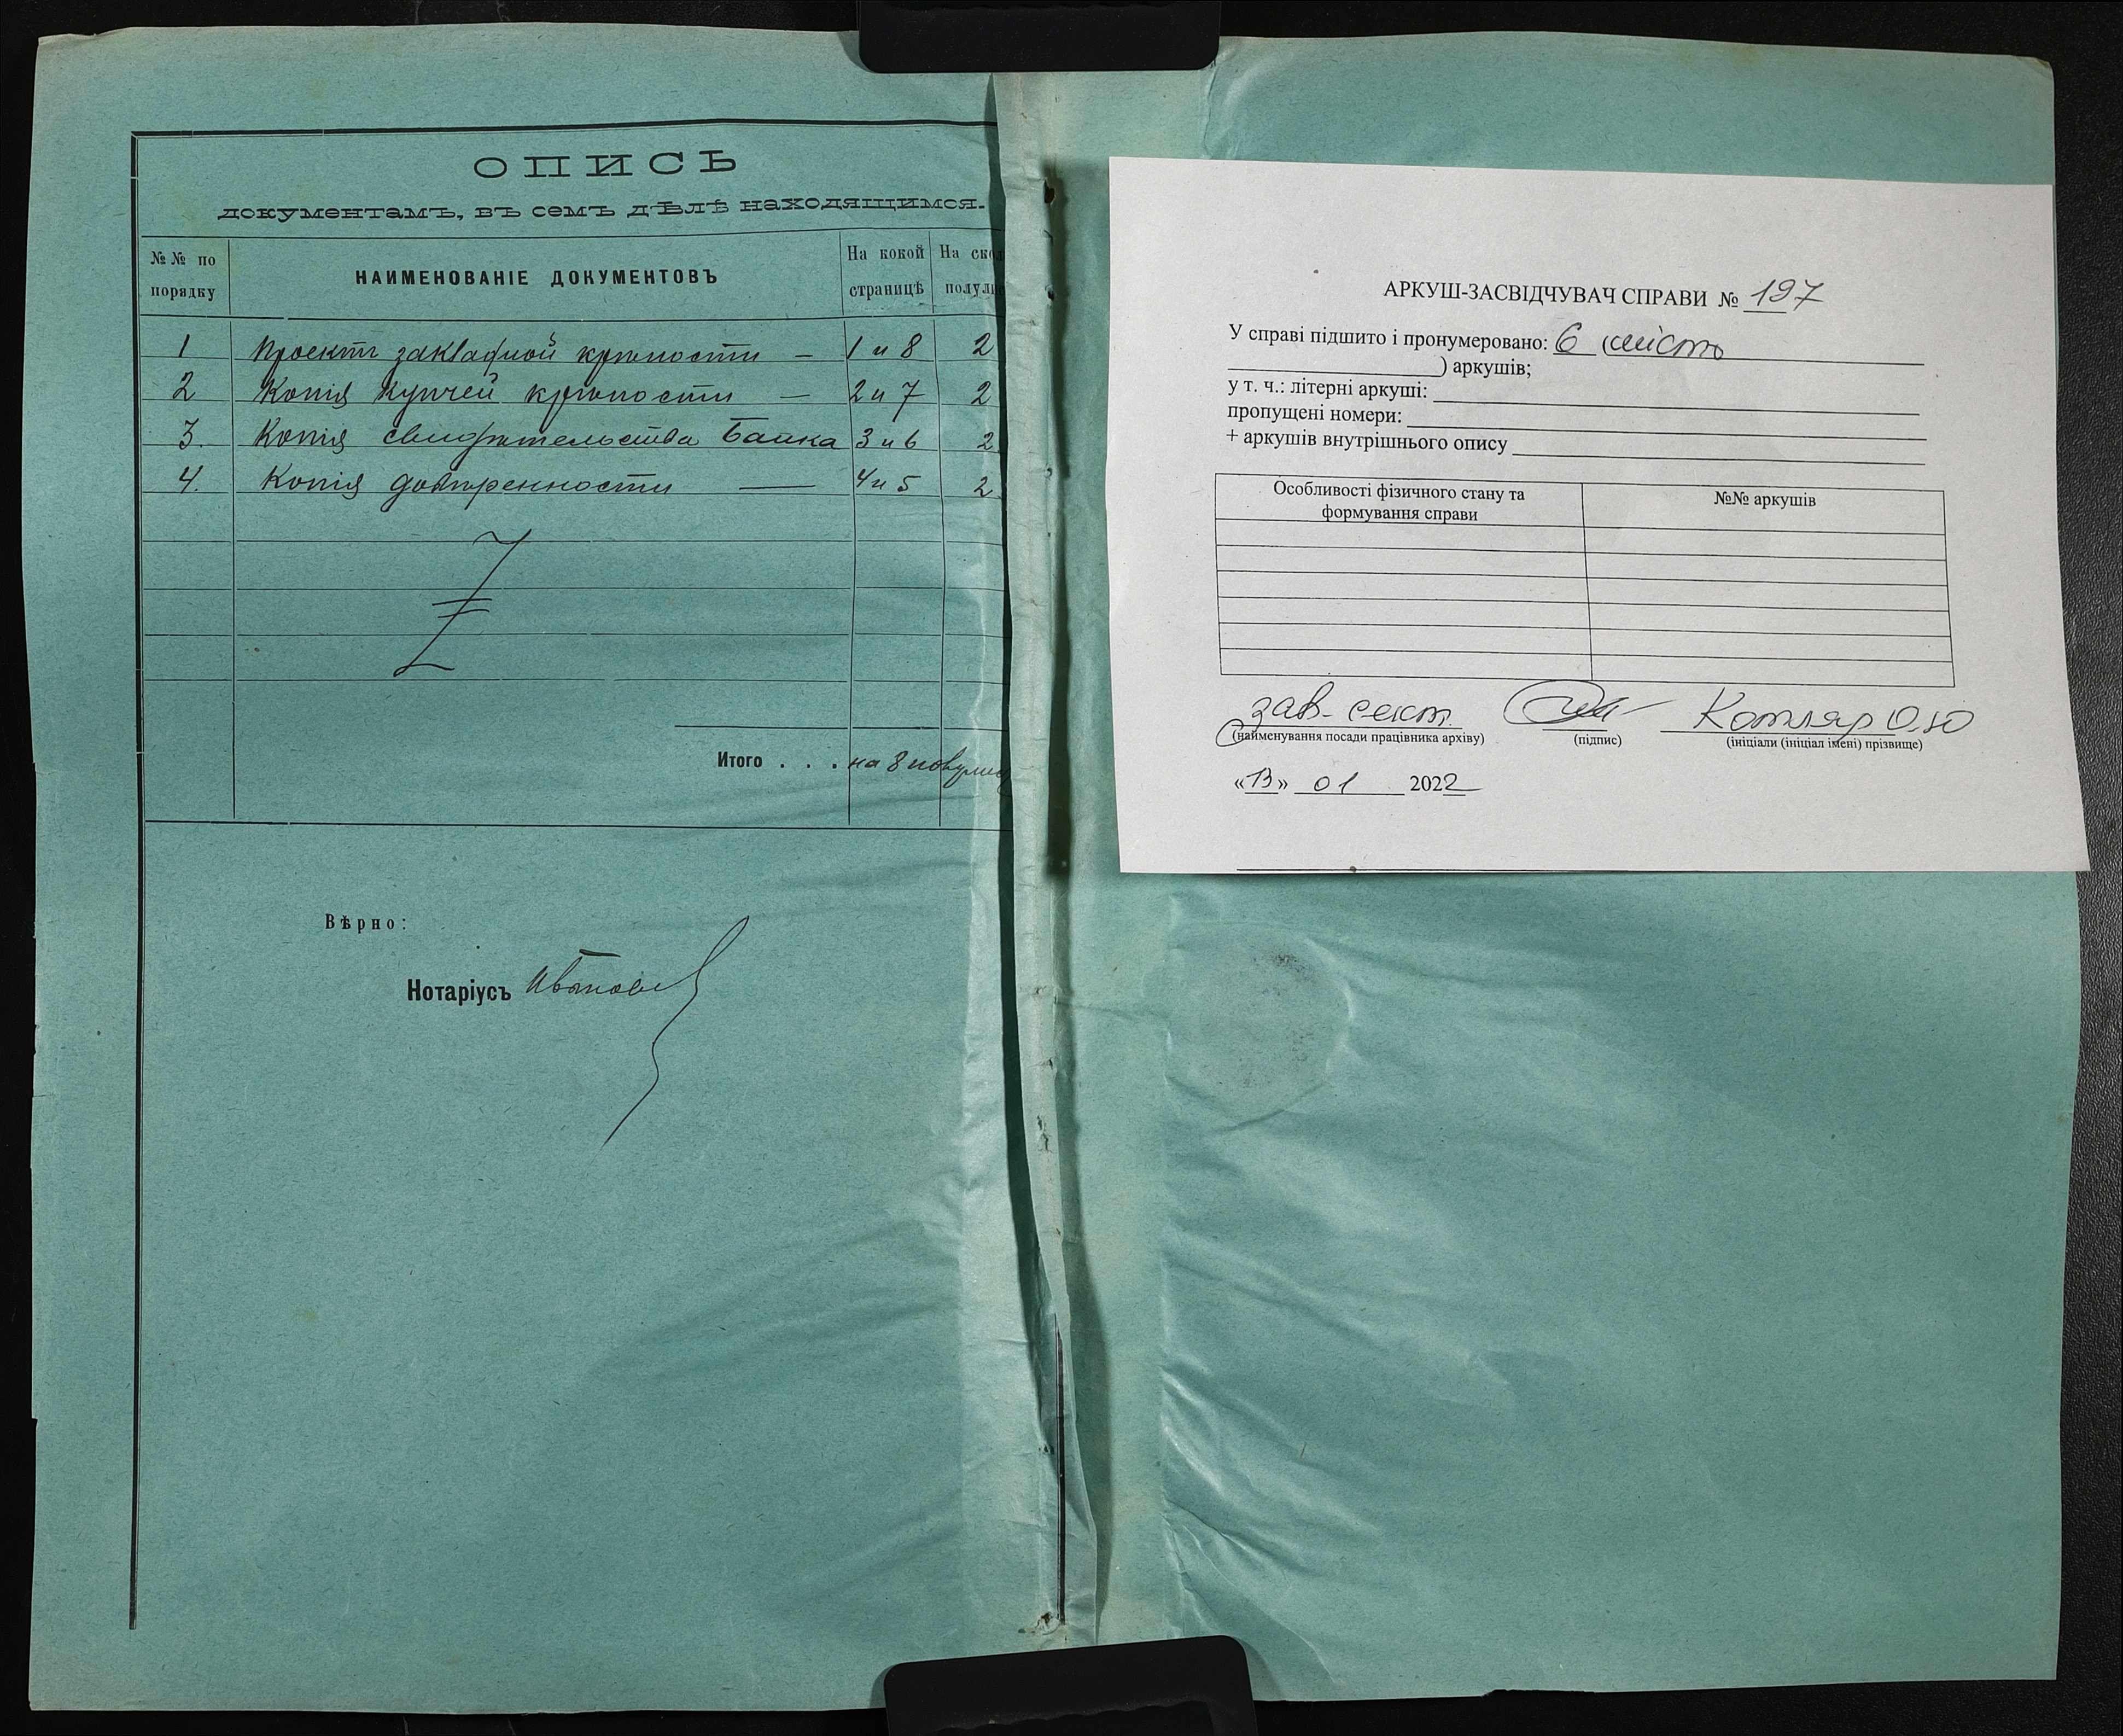 ОПИСЬ
документамъ, въ семъ дѣлѣ находящимся.
№№ по порядку
НАИМЕНОВАНІЕ ДОКУМЕНТОВЪ
На кокой страницѣ
На скол полули
1 Проектъ закладной крѣпости — 1 и 8 2
2 Копія купчей крѣпости — 2 и 7 2
3. Копія свидѣтельства Банка 3 и 6 2
4. Копія довѣренности — 4 и 5 2
Итого . . . на 8 полулис
Вѣрно:
Нотаріусъ Ивановъ
АРКУШ-ЗАСВІДЧУВАЧ СПРАВИ № 197
У справі підшито і пронумеровано: 6 (шість
) аркушів;
у т. ч.: літерні аркуші:
пропущені номери:
+ аркушів внутрішнього опису
Особливості фізичного стану та
формування справи
№№ аркушів
зав. сект. Котляр О.Ю
(найменування посади працівника архіву) (підпис) (ініціали (ініціал імені) прізвище)
«13» 01 2022